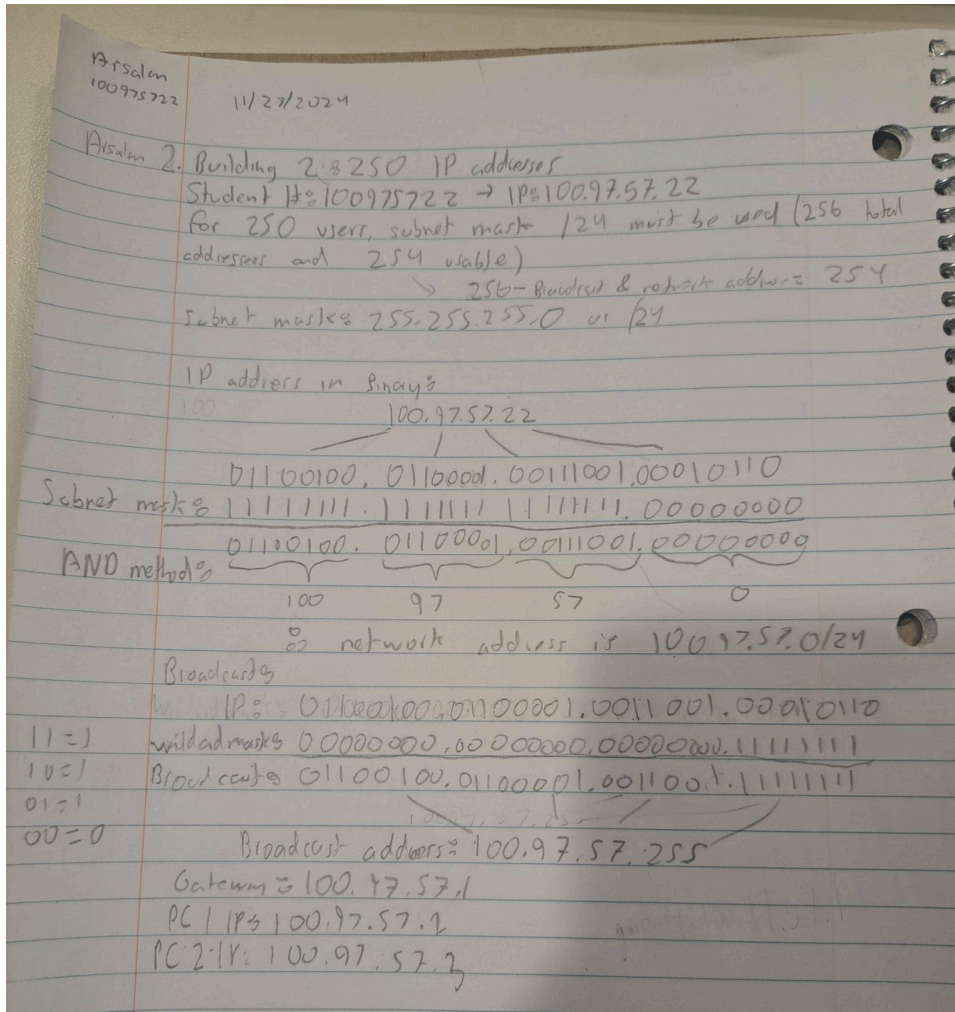 Arsalan
100975722
11/27/2024
Arsalan 2. Building 2:250 IP addresses
Student #:100975722 → IP:100.97.57.22
For 250 users, subnet mask /24 must be used (256 total
addresses and 254 usable)
↘ 256- Broadcast & network address = 254
Subnet mask: 255.255.255.0 or /24
IP address in Binary:
100
100.97.57.22
01100100. 0110001. 00111001.00010110
Subnet mask: 11111111. 11111111 11111111. 00000000
01100100. 01100001.00111001.00000000
AND method:
100 97 57 0
∴ network address is 100 97.57.0/24
Broadcast:
IP: 01100100.01100001.0011 001.00010110
11=1 wildcad mask: 00000000.00000000.00000000.11111111
10=1 Broadcast: 01100100.01100001.0011001.11111111
01=1
00=0
Broadcast address: 100.97.57.255
Gateway: 100.97.57.1
PC 1 IP: 100.97.57.2
PC 2 IP: 100.97.57.3